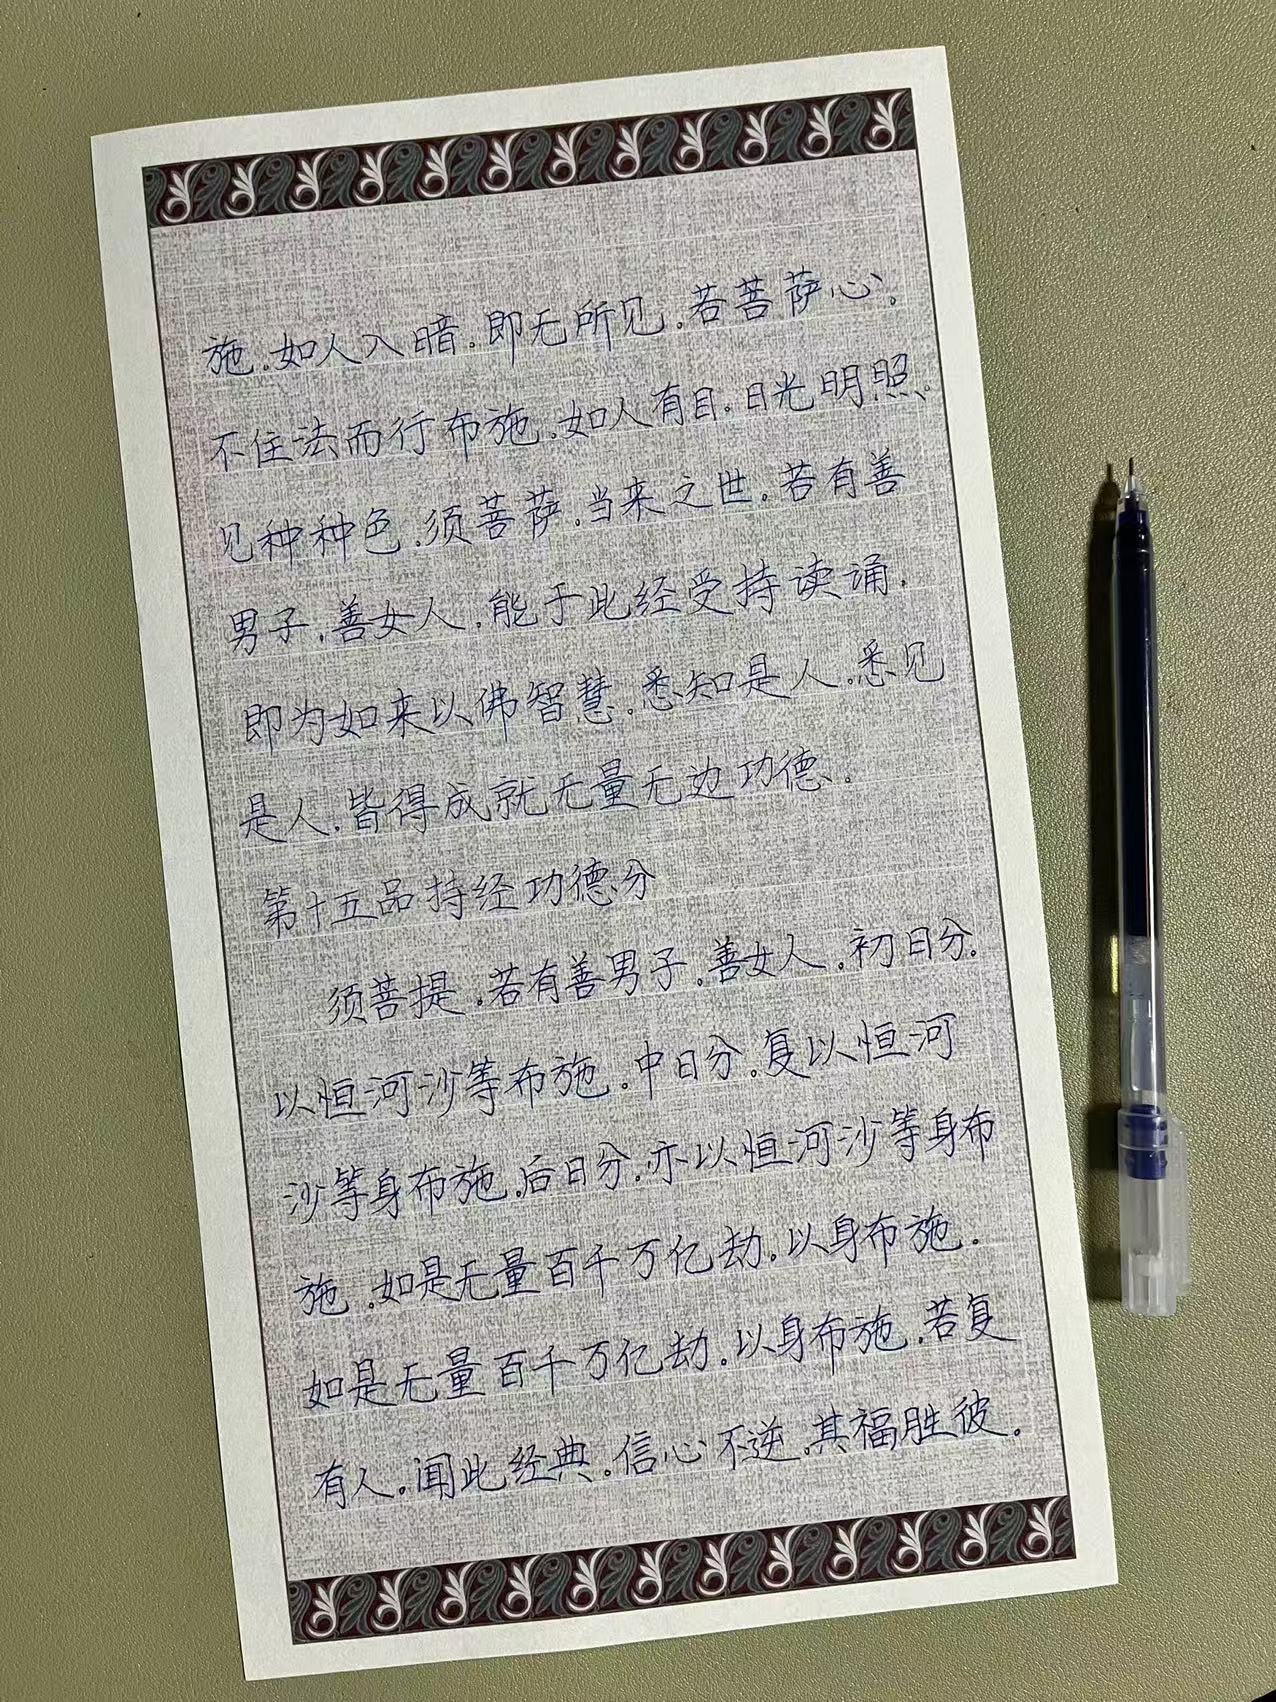 施。如人入暗。即无所见。若菩萨心。
不住法而行布施。如人有目。日光明照。
见种种色。须菩萨。当来之世。若有善
男子。善女人。能于此经受持读诵。
即为如来以佛智慧。悉知是人。悉见
是人。皆得成就无量无边功德。
第十五品持经功德分
须菩提。若有善男子。善女人。初日分。
以恒河沙等布施。中日分。复以恒河
沙等身布施。后日分。亦以恒河沙等身布
施。如是无量百千万亿劫。以身布施。
如是无量百千万亿劫。以身布施。若复
有人。闻此经典。信心不逆。其福胜彼。